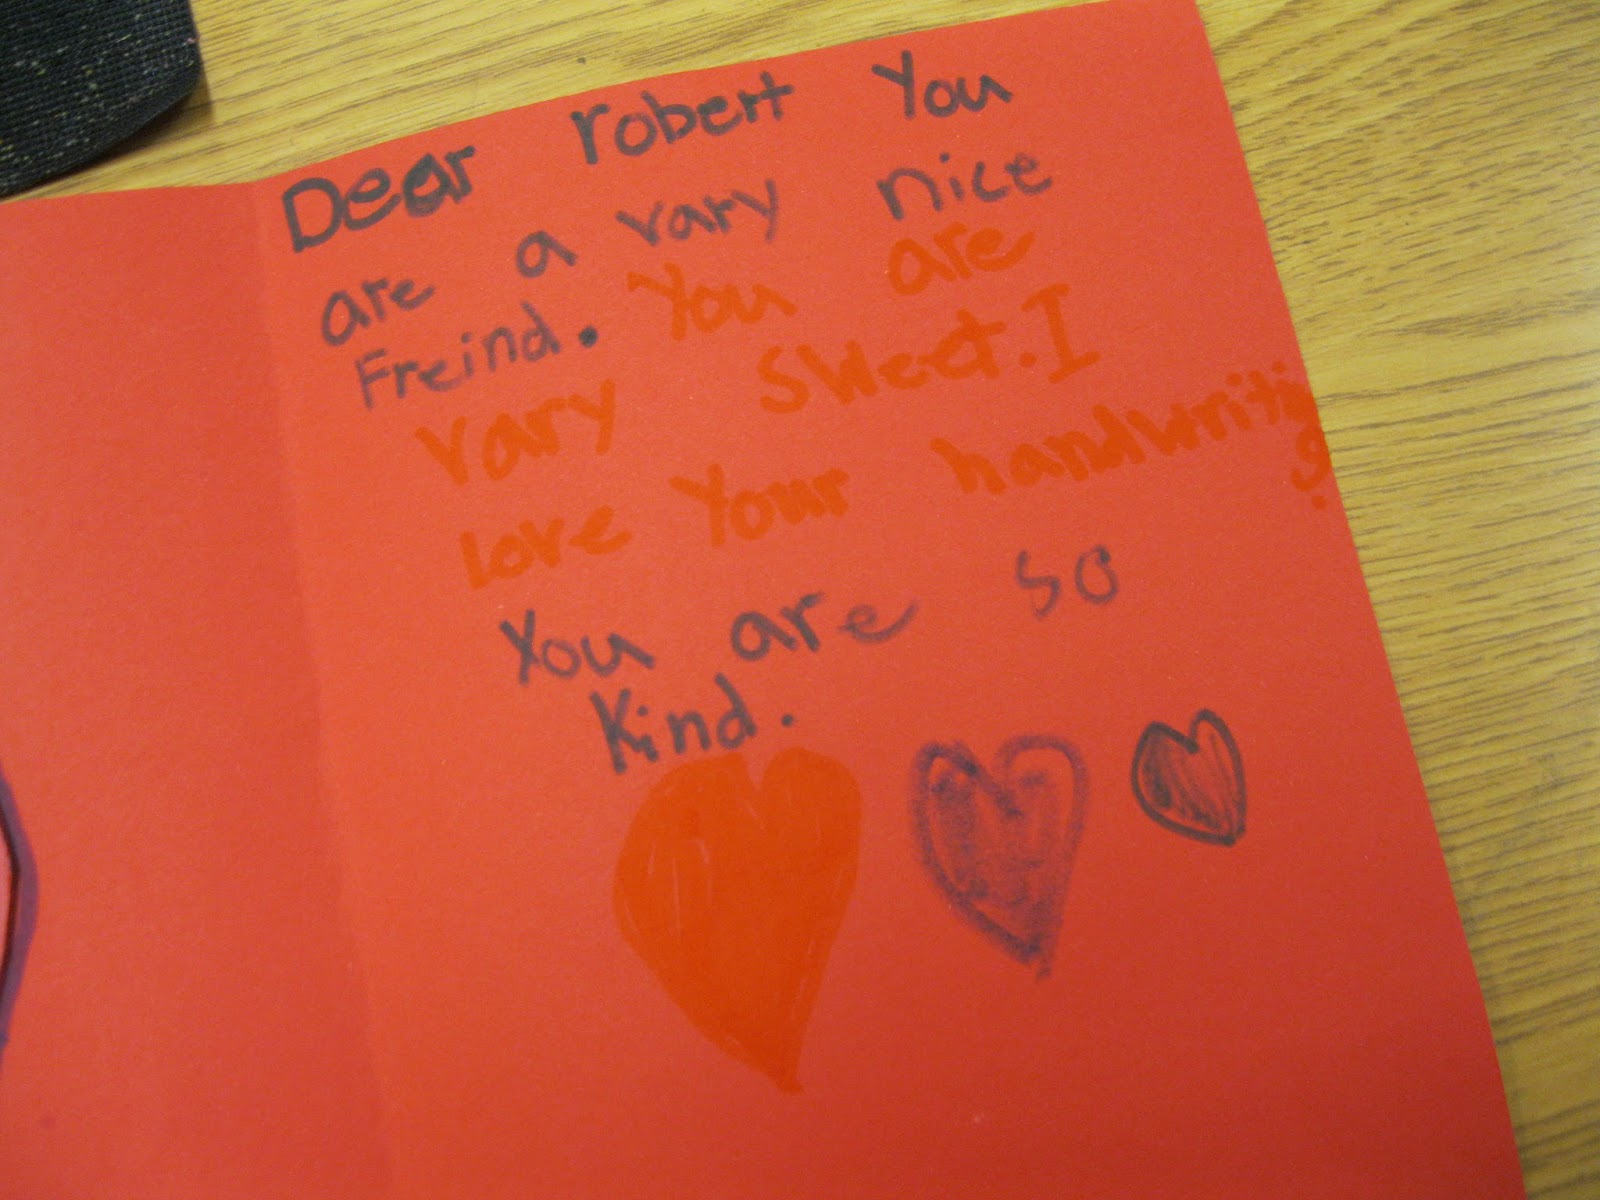 Dear robert You
are a vary nice
Freind. You are
vary sweet. I
love Your handwriting.
You are so
Kind.